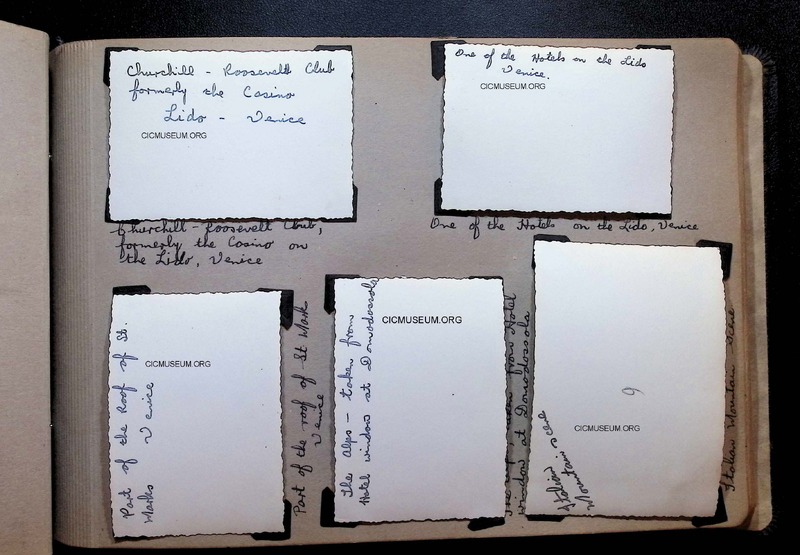 Churchill - Roosevelt Club
formerly the Casino
Lido - Venice
CICMUSEUM.ORG
Churchill - Roosevelt Club,
formerly the Casino on
the Lido, Venice
One of the Hotels on the Lido
Venice.
CICMUSEUM.ORG
One of the Hotels on the Lido, Venice
Part of the Roof of St.
Marks Venice
CICMUSEUM.ORG
Part of the roof of St Mark
Venice
The Alps - taken from
Hotel window at Domodossola
CICMUSEUM.ORG
from Hotel
window at Domodossola
Italian scene
Mountain
9
CICMUSEUM.ORG
Italian Mountain scene